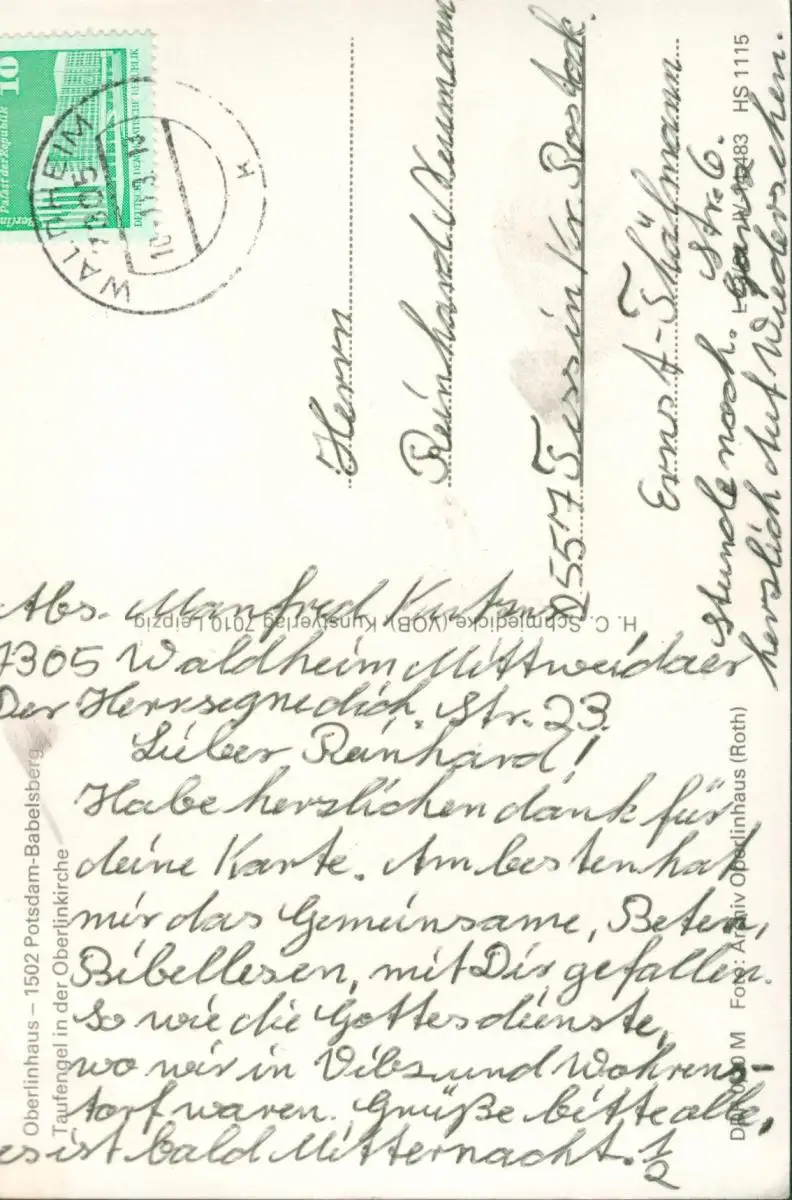 10
Palast der Republik
Berlin
DEUTSCHE DEMOKRATISCHE REPUBLIK
WALDHEIM
7305
Herrn
Reinhard Neumann
2557 Tessin Kr. Rostock.
Ernst-Thälmann
Str. 6.
HS 1115
H. C. Schmiedicke (VOB) Kunstverlag 7010 Leipzig
Abs. Manfred
7305 Waldheim Mittweidaer
Der Herr segne dich, Str. 23
Lieber Reinhard!
Habe herzlichen dank für
deine Karte. Am besten hat
mir das Gemeinsame, Beten,
Bibellesen, mit Dir gefallen.
So wie die Gottesdienste,
wo wir in Vilz und Wohrens-
torf waren. Grüße bitte alle,
es ist bald Mitternacht. 1/2
Stunde noch. Ganz
herzlich Auf Wiedersehen.
Oberlinhaus – 1502 Potsdam-Babelsberg
Taufengel in der Oberlinkirche
Foto: Archiv Oberlinhaus (Roth)